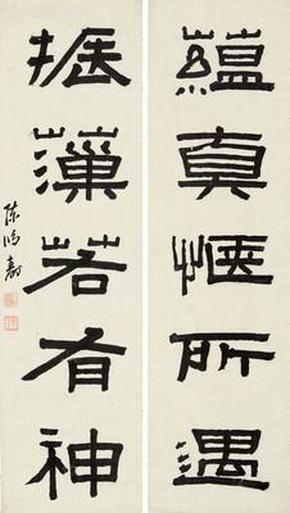 蘊真愜所遇
振薻若有神
陳鴻壽